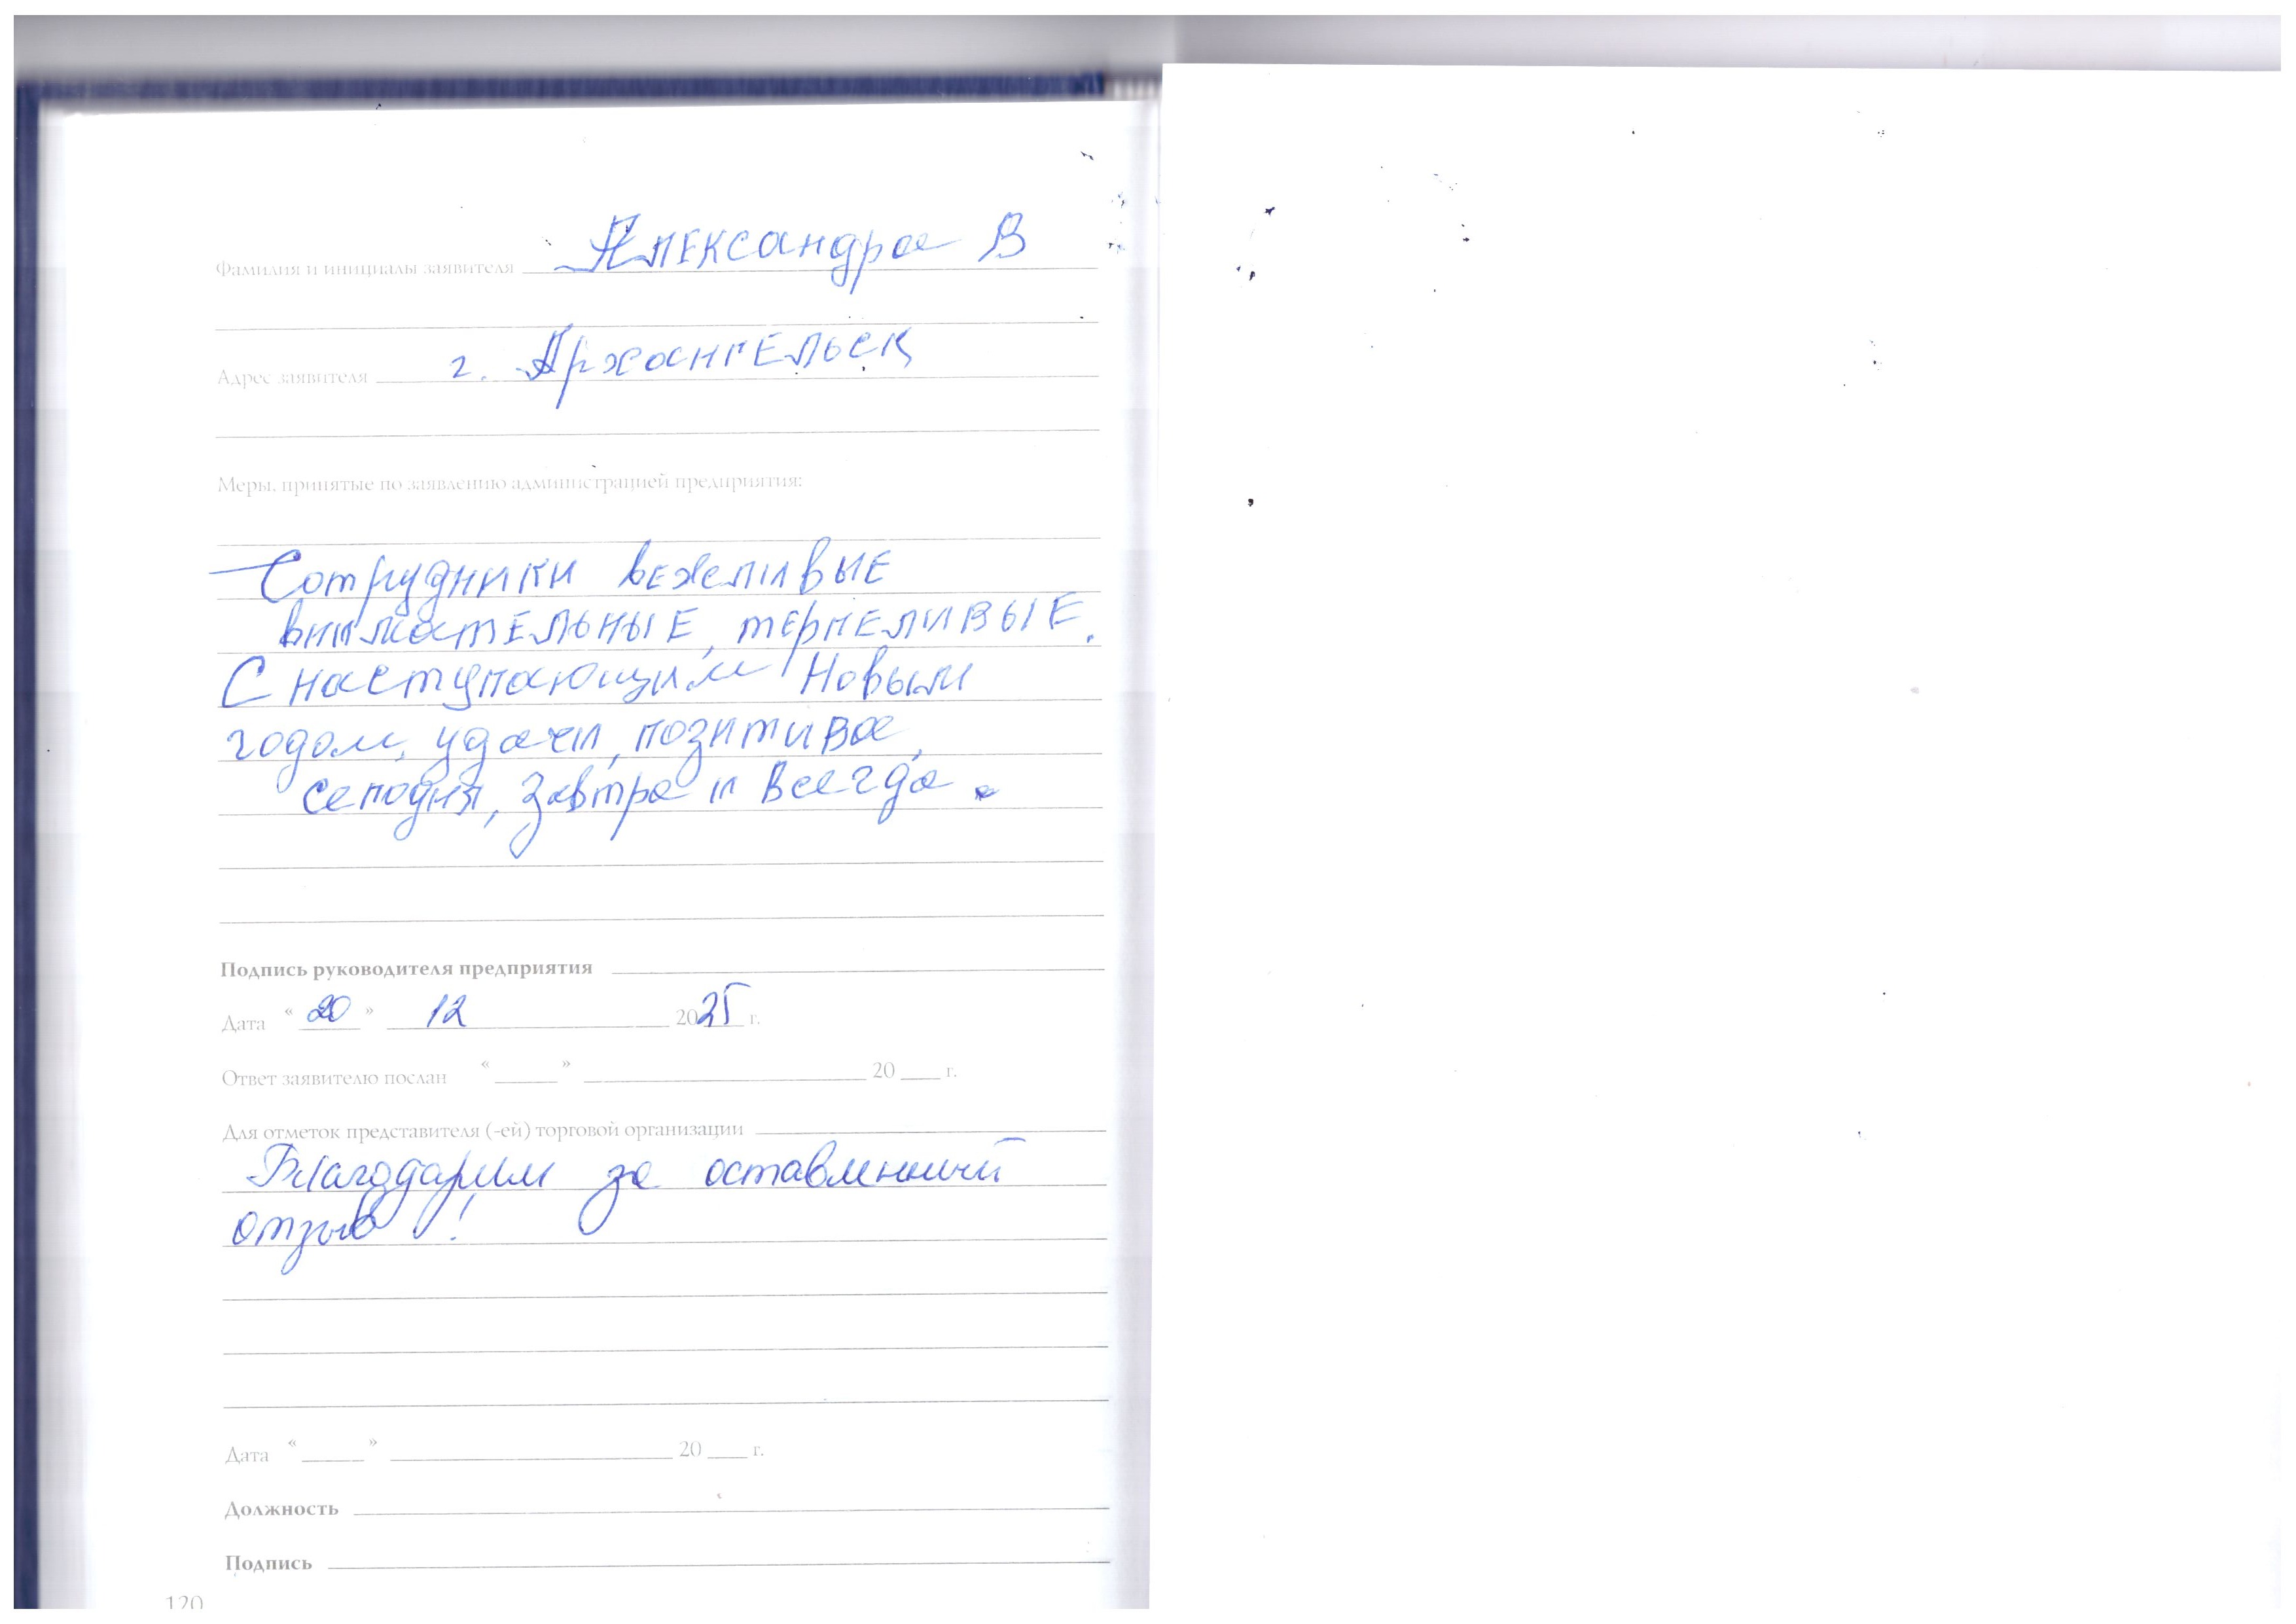 Фамилия и инициалы заявителя Александра В
Адрес заявителя г. Архангельск
Меры, принятые по заявлению администрацией предприятия:
Сотрудники вежливые
внимательные, терпеливые.
С наступающим Новым
годом, удачи, позитива,
сегодня, завтра и всегда.
Подпись руководителя предприятия
Дата « 20 » 12 2025 г.
Ответ заявителю послан « » 20 г.
Для отметок представителя (-ей) торговой организации
Благодарим за оставленный
отзыв!
Дата « » 20 г.
Должность
Подпись
120